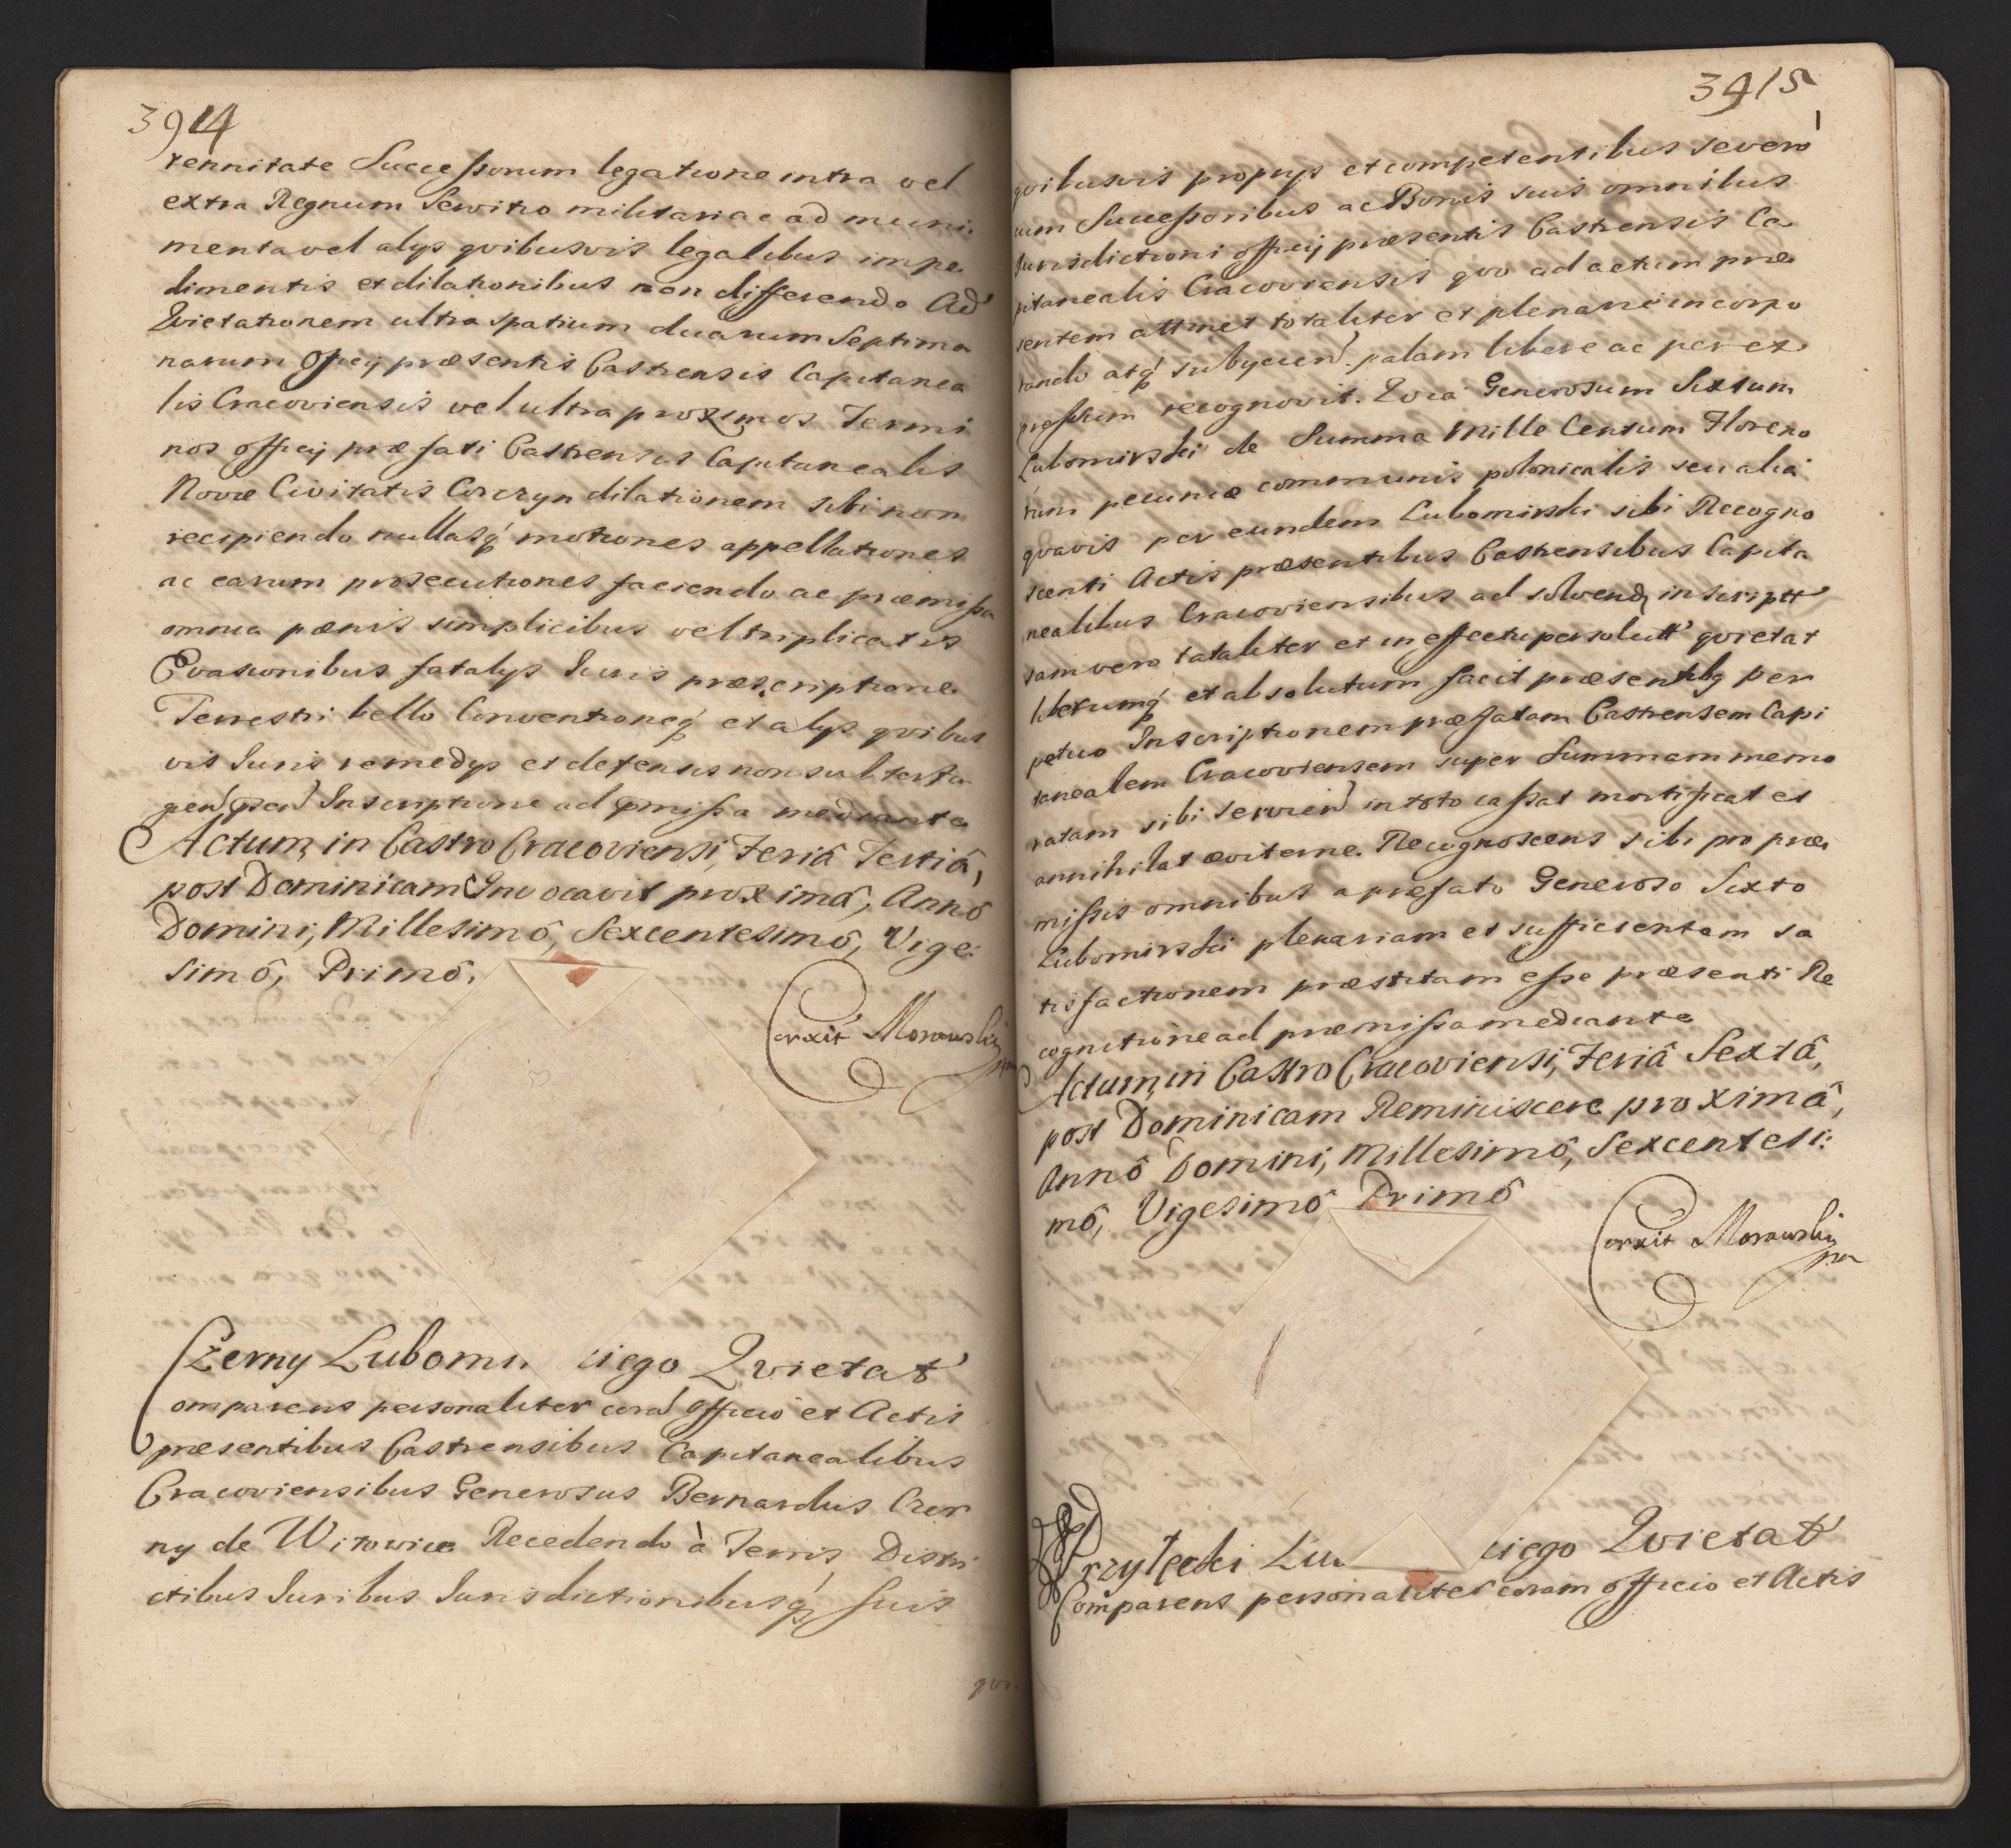 3914
rennitate Successorum legatione intra vel
extra Regnum Servitio militari ac ad muni:
menta vel alys qvibusvis legalibus impe
dimentis et dilationibus non differendo Ad
Qvietationem ultra spatium duarum Septima
narum Officy præsentis Castrensis Capitanea
lis Cracoviensis vel ultra proximos Termi
nos officy præfati Castrensis Capitanealis
Novæ Civitatis Corczyn dilationem sibi non
recipiendo nullasq́ motiones appellationes
ac earum prosecutiones faciendo ac præmissa
omnia pænis simplicibus vel triplicatis
Evasionibus fatalys Iuris præscriptione
Terrestri bello Conventioneq́ et alys qvibus
vis Iuris remedys et defensis non subterfu
gien Inscriptione ad pmissa mediante
Actum, in Castro Cracoviensi, Feriâ Tertiâ,
post Dominicam Invocavit proximâ, Annô
Domini, Millesimô, Sexcentesimô, Vige:
simô, Primô.
Corxit Morawski
Czerny Lubomi ciego Qvietat
Comparens personaliter corā Officio et Actis
præsentibus Castrensibus Capitanealibus
Cracoviensibus Generosus Bernardus Czer
ny de Witowice Recedendo à Terris, Distri
ctibus Iuribus Iurisdictionibusq́ suis
qvi
3915
qvibusvis proprys et competentibus se vero
cum Successoribus ac Bonis suis omnibus
Iurisdictioni officy præsentis Castrensis Ca
pitanealis Cracoviensis qvo ad actum præ
sentem attinet totaliter et plenarie incorpo
rando atq́ subyciend palam libere ac per ex
pressum recognovit. Qvia Generosum Sextum
Lubomirski de Summa Mille Centum Floreno
rum pecuniæ communis polonicalis seu alia
qvavis per eundem Lubomirski sibi Recogno
scenti Actis præsentibus Castrensibus Capita
nealibus Cracoviensibus ad solvend inscriptt
iam vero totaliter et in effectu persolutt qvietat
liberumq́ et absolutum facit præsentibq per
petuo Inscriptionem præfatam Castrensem Capi
tanealem Cracoviensem super Summam memo
ratam sibi servien in toto cassat mortificat et
annihilat æviterne. Recognoscens sibi pro præ
missis omnibus a præfato Generoso Sexto
Lubomirski plenariam et sufficientem sa
tisfactionem præstitam esse præsenti Re
cognitione ad præmissa mediante
Actum, in Castro Cracoviensi, Feriâ Sextâ,
post Dominicam Reminiscere proximâ,
Annô Domini, Millesimô, Sexcentesi:
mô, Vigesimô Primô
Corxit Morawski
Przyłęcki Lu ciego Qvietat
Comparens personaliter coram officio et Actis